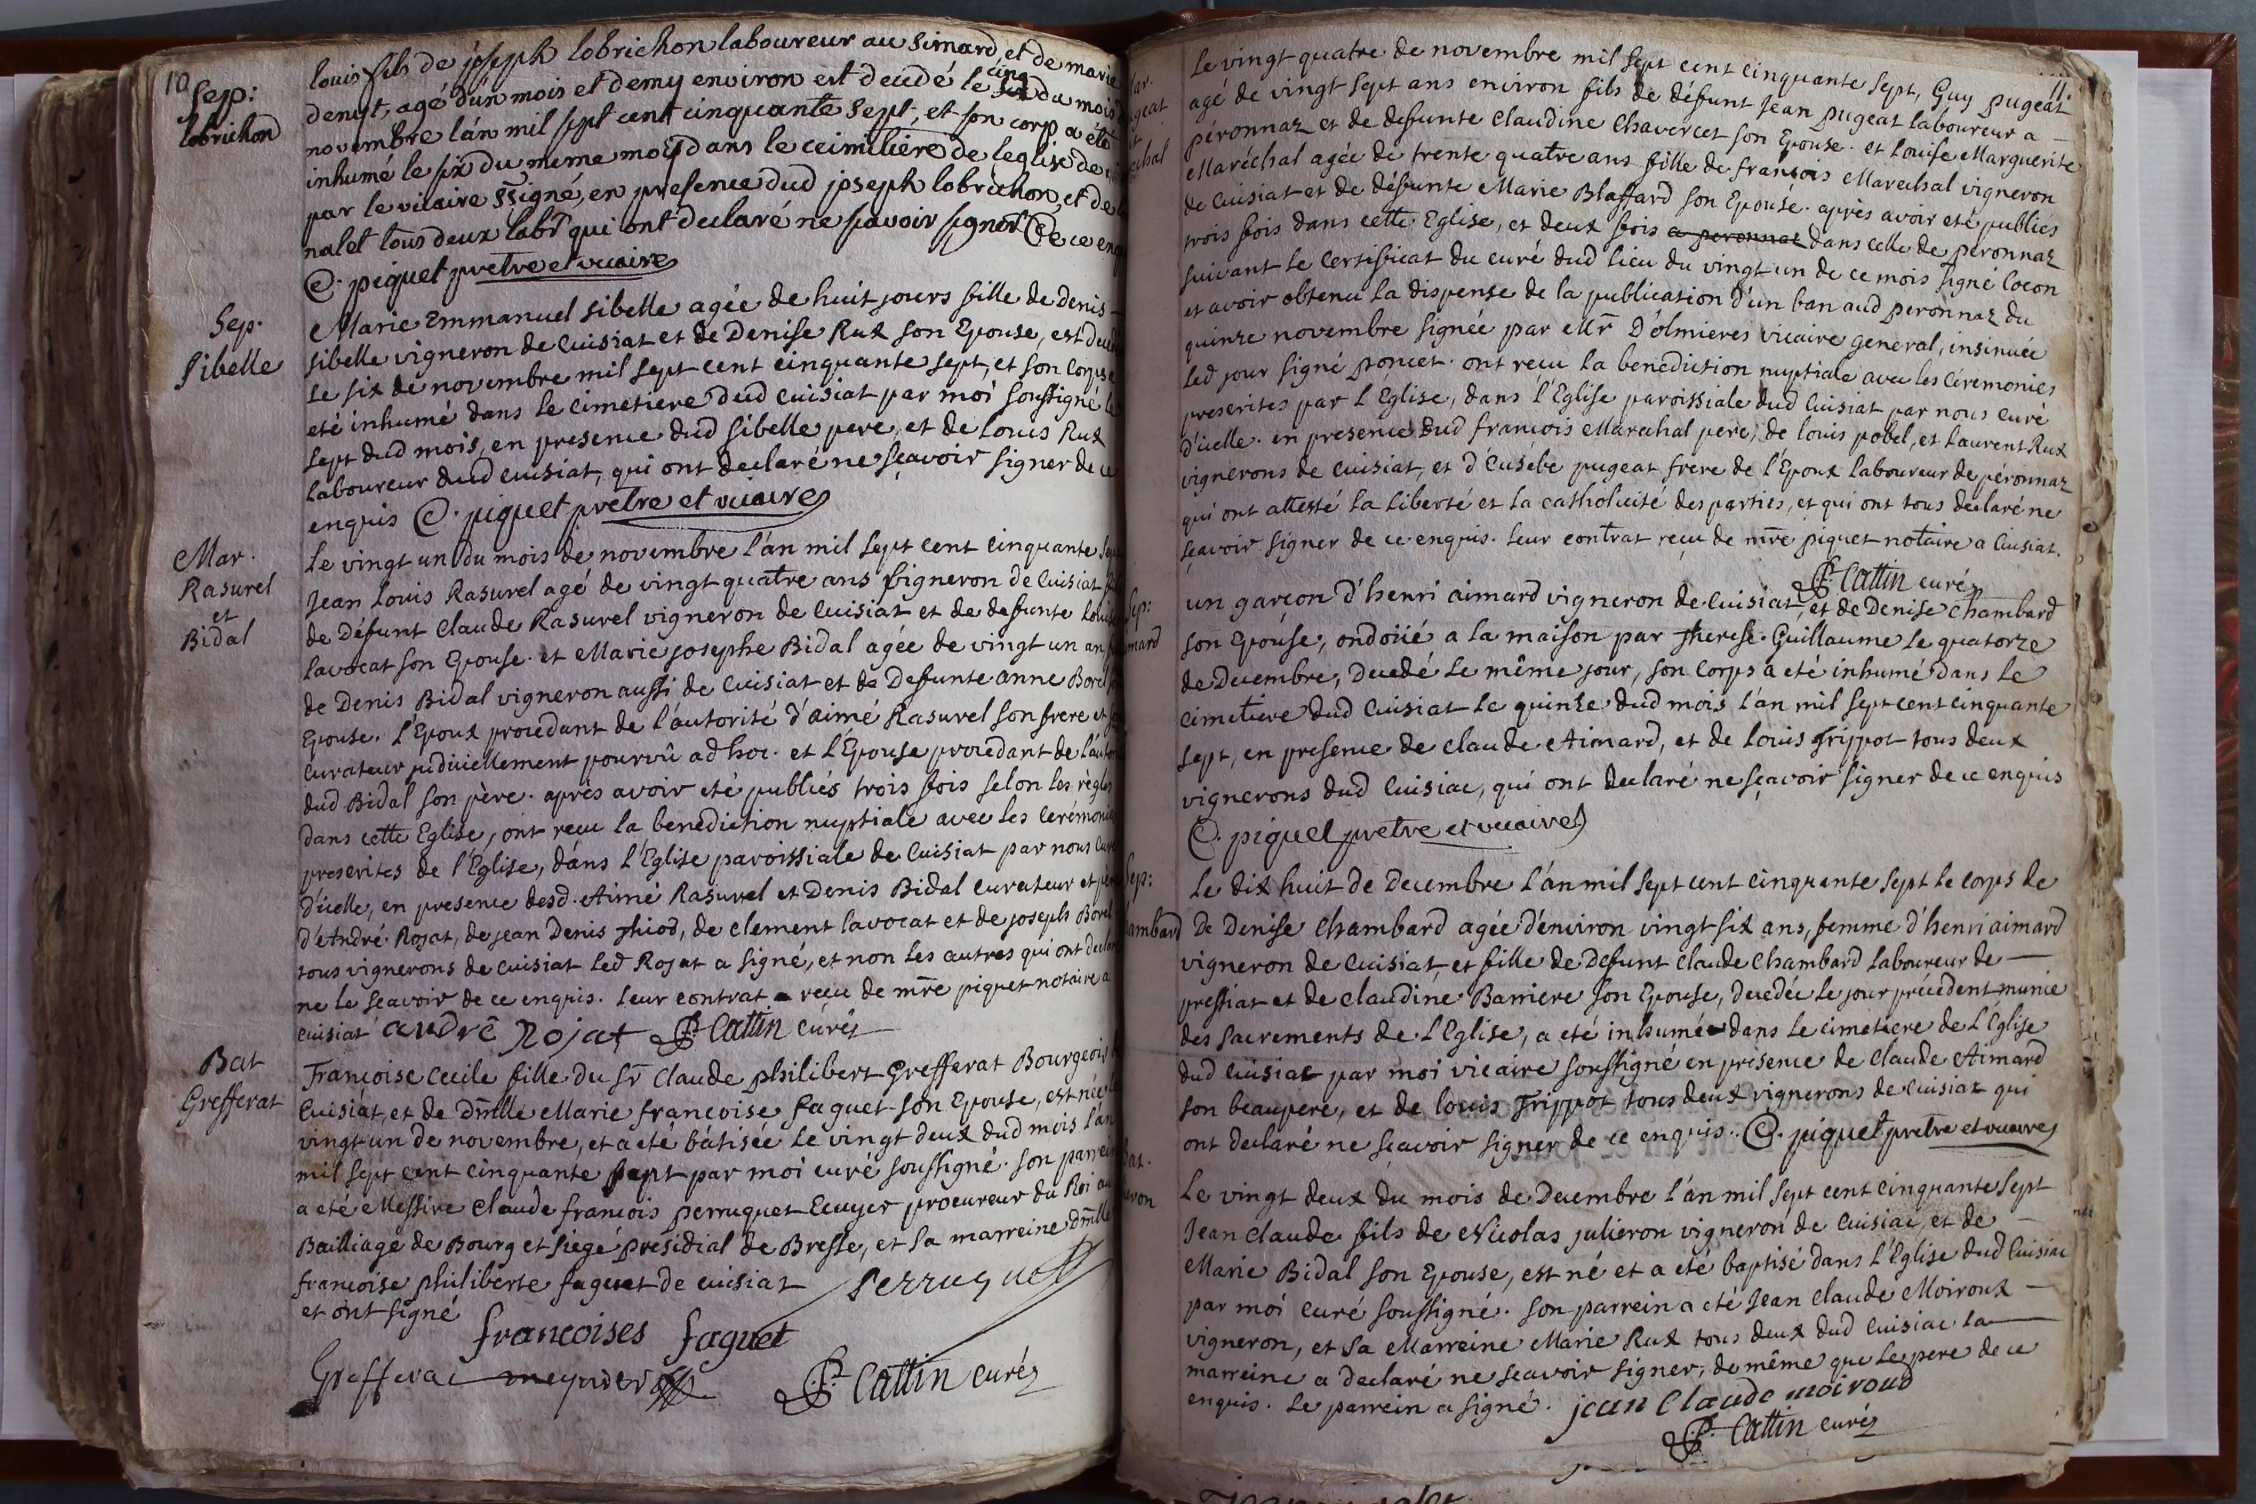 10
Sep:
lobrichon
louis fils de joseph lobrichon laboureur au simard et de marie
denist, agé d'un mois et demy environ est decedé le cinq du mois
novembre l'an mil sept cent cinquante sept, et son corp a été
inhumé le six du meme mois dans le ceimiliére de leglise de
par le vicaire ssigné, en presence dud joseph lobrichon, et de
nalet tous deux labr qui ont declaré ne savoir signer de ce enq
C. piquet pretre et vicaire
Sep.
Sibelle
Marie Emmanuel sibelle agée de huit jours fille de Denis
sibelle vigneron de cuisiat et de Denise Rux son Epouse, est deced
le six de novembre mil sept cent cinquante sept, et son corps a
eté inhumé dans le cimetiere dud cuisiat par moi soussigné le
sept dud mois, en presence dud sibelle pere, et de Louis Rux
laboureur dud cuisiat, qui ont declaré ne sçavoir signer de ce
enquis C. piquet pretre et vicaire
Mar.
Rasurel
et
Bidal
Le vingt un du mois de novembre l'an mil sept cent cinquante sept
Jean Louis Rasurel agé de vingt quatre ans vigneron de cuisiat
de Défunt Claude Rasurel vigneron de cuisiat et de defunte Louise
lavocat son Epouse. et Marie josephe Bidal agée de vingt un an
de Denis Bidal vigneron aussi de cuisiat et de Defunte anne Borel
Epouse. l'Epoux procedant de l'autorité d'aimé Rasurel son frere et
curateur judiciellement pourvû ad hoc. et l'Epouse procedant de l'autor
dud Bidal son père. après avoir eté publiés trois fois selon les règles
dans cette Eglise, ont reçu la benediction nuptiale avec les cérémonies
prescrites de l'Eglise, dans l'Eglise paroissiale de cuisiat par nous curé
d'icelle, en presence desd. Aimé Rasurel et Denis Bidal curateur et pere
d'André Rojat, de jean Denis Thiod, de clement lavocat et de joseph Borel
tous vignerons de cuisiat led Rojat a signé, et non les autres qui ont declaré
ne le sçavoir de ce enquis. leur contrat reçu de mre piquet notaire a
cuisiat andré Rojat P. Cattin curé
Bat
Grefferat
Françoise Cecile fille du Sr Claude philibert Grefferat Bourgeois
cuisiat, et de Dmlle Marie françoise faguet son Epouse, est née le
vingt un de novembre, et a eté bâtisée le vingt deux dud mois l'an
mil sept cent cinquante sept par moi curé soussigné. son parrein
a eté Messire Claude francois perruquet Ecuyer procureur du Roi au
Bailliage de Bourg et siege presidial de Bresse, et sa marreine Dmlle
françoise philiberte faguet de cuisiat Perruquet
et ont signé
francoises faguet
Grefferat P. Cattin curé
11.
Le vingt quatre de novembre mil sept cent cinquante sept, Guy pugeat
agé de vingt sept ans environ fils de défunt Jean pugeat laboureur a
péronnaz et de defunte Claudine Chavercet son Epouse. et Louise Marguerite
Maréchal agée de trente quatre ans fille de françois Marechal vigneron
de cuisiat et de défunte Marie Blaffard son Epouse. après avoir eté publiés
trois fois dans cette Eglise, et deux fois a peronnaz dans celle de péronnaz
suivant le certificat du curé dud lieu du vingt un de ce mois signé Cocon
et avoir obtenu la dispense de la publication d'un ban aud peronnaz du
quinze novembre signée par Mr D'olmieres vicaire general, insinuée
led jour signé poncet. ont reçu la benediction nuptiale avec les céremonies
prescrites par l'Eglise, dans l'Eglise paroissiale dud cuisiat par nous curé
d'icelle. en presence dud francois Marechal pere, de louis pobel, et Laurent Rux
vignerons de cuisiat, et d'Eusébe pugeat frere de l'Epoux laboureur de péronnaz
qui ont attesté la liberté et la catholicité des parties, et qui ont tous declaré ne
sçavoir signer de ce enquis. leur contrat reçu de mre piquet notaire a cuisiat.
P. Cattin curé
Sep:
un garçon d'henri aimard vigneron de cuisiat, et de Denise Chambard
son Epouse, ondoiié a la maison par Therese Guillaume le quatorze
de Decembre, decedé le même jour, son corps a eté inhumé dans le
cimetiere dud cuisiat le quinze dud mois l'an mil sept cent cinquante
sept, en presence de Claude Aimard, et de louis Trippot tous deux
vignerons dud cuisiat, qui ont declaré ne sçavoir signer de ce enquis
C. piquet pretre et vicaire
Sep:
ambard
Le dix huit de Decembre l'an mil sept cent cinquante sept le corps de
De Denise Chambard agée d'environ vingt six ans, femme d'henri aimard
vigneron de cuisiat, et fille de Defunt Claude Chambard laboureur de
pressiat et de Claudine Barriere son Epouse, decedée le jour précedent munie
des sacrements de l'Eglise, a eté inhumé dans le cimetiere de l'Eglise
dud cuisiat par moi vicaire soussigné en présence de Claude Aimard
son beaupere, et de louis Trippot tous deux vignerons de cuisiat qui
ont declaré ne sçavoir signer de ce enquis. C. piquet pretre et vicaire
Bat.
eron
Le vingt deux du mois de Decembre l'an mil sept cent cinquante sept
Jean Claude fils de Nicolas julieron vigneron de cuisiat, et de
Marie Bidal son Epouse, est né et a eté baptisé dans l'Eglise dud cuisiat
par moi curé soussigné. son parrein a eté Jean Claude Moiroux
vigneron, et sa Marreine Marie Rux tous deux dud cuisiat la
marreine a declaré ne sçavoir signer, de même que le pere de ce
enquis. le parrein a signé. jean Claude moiroud
P. Cattin curé